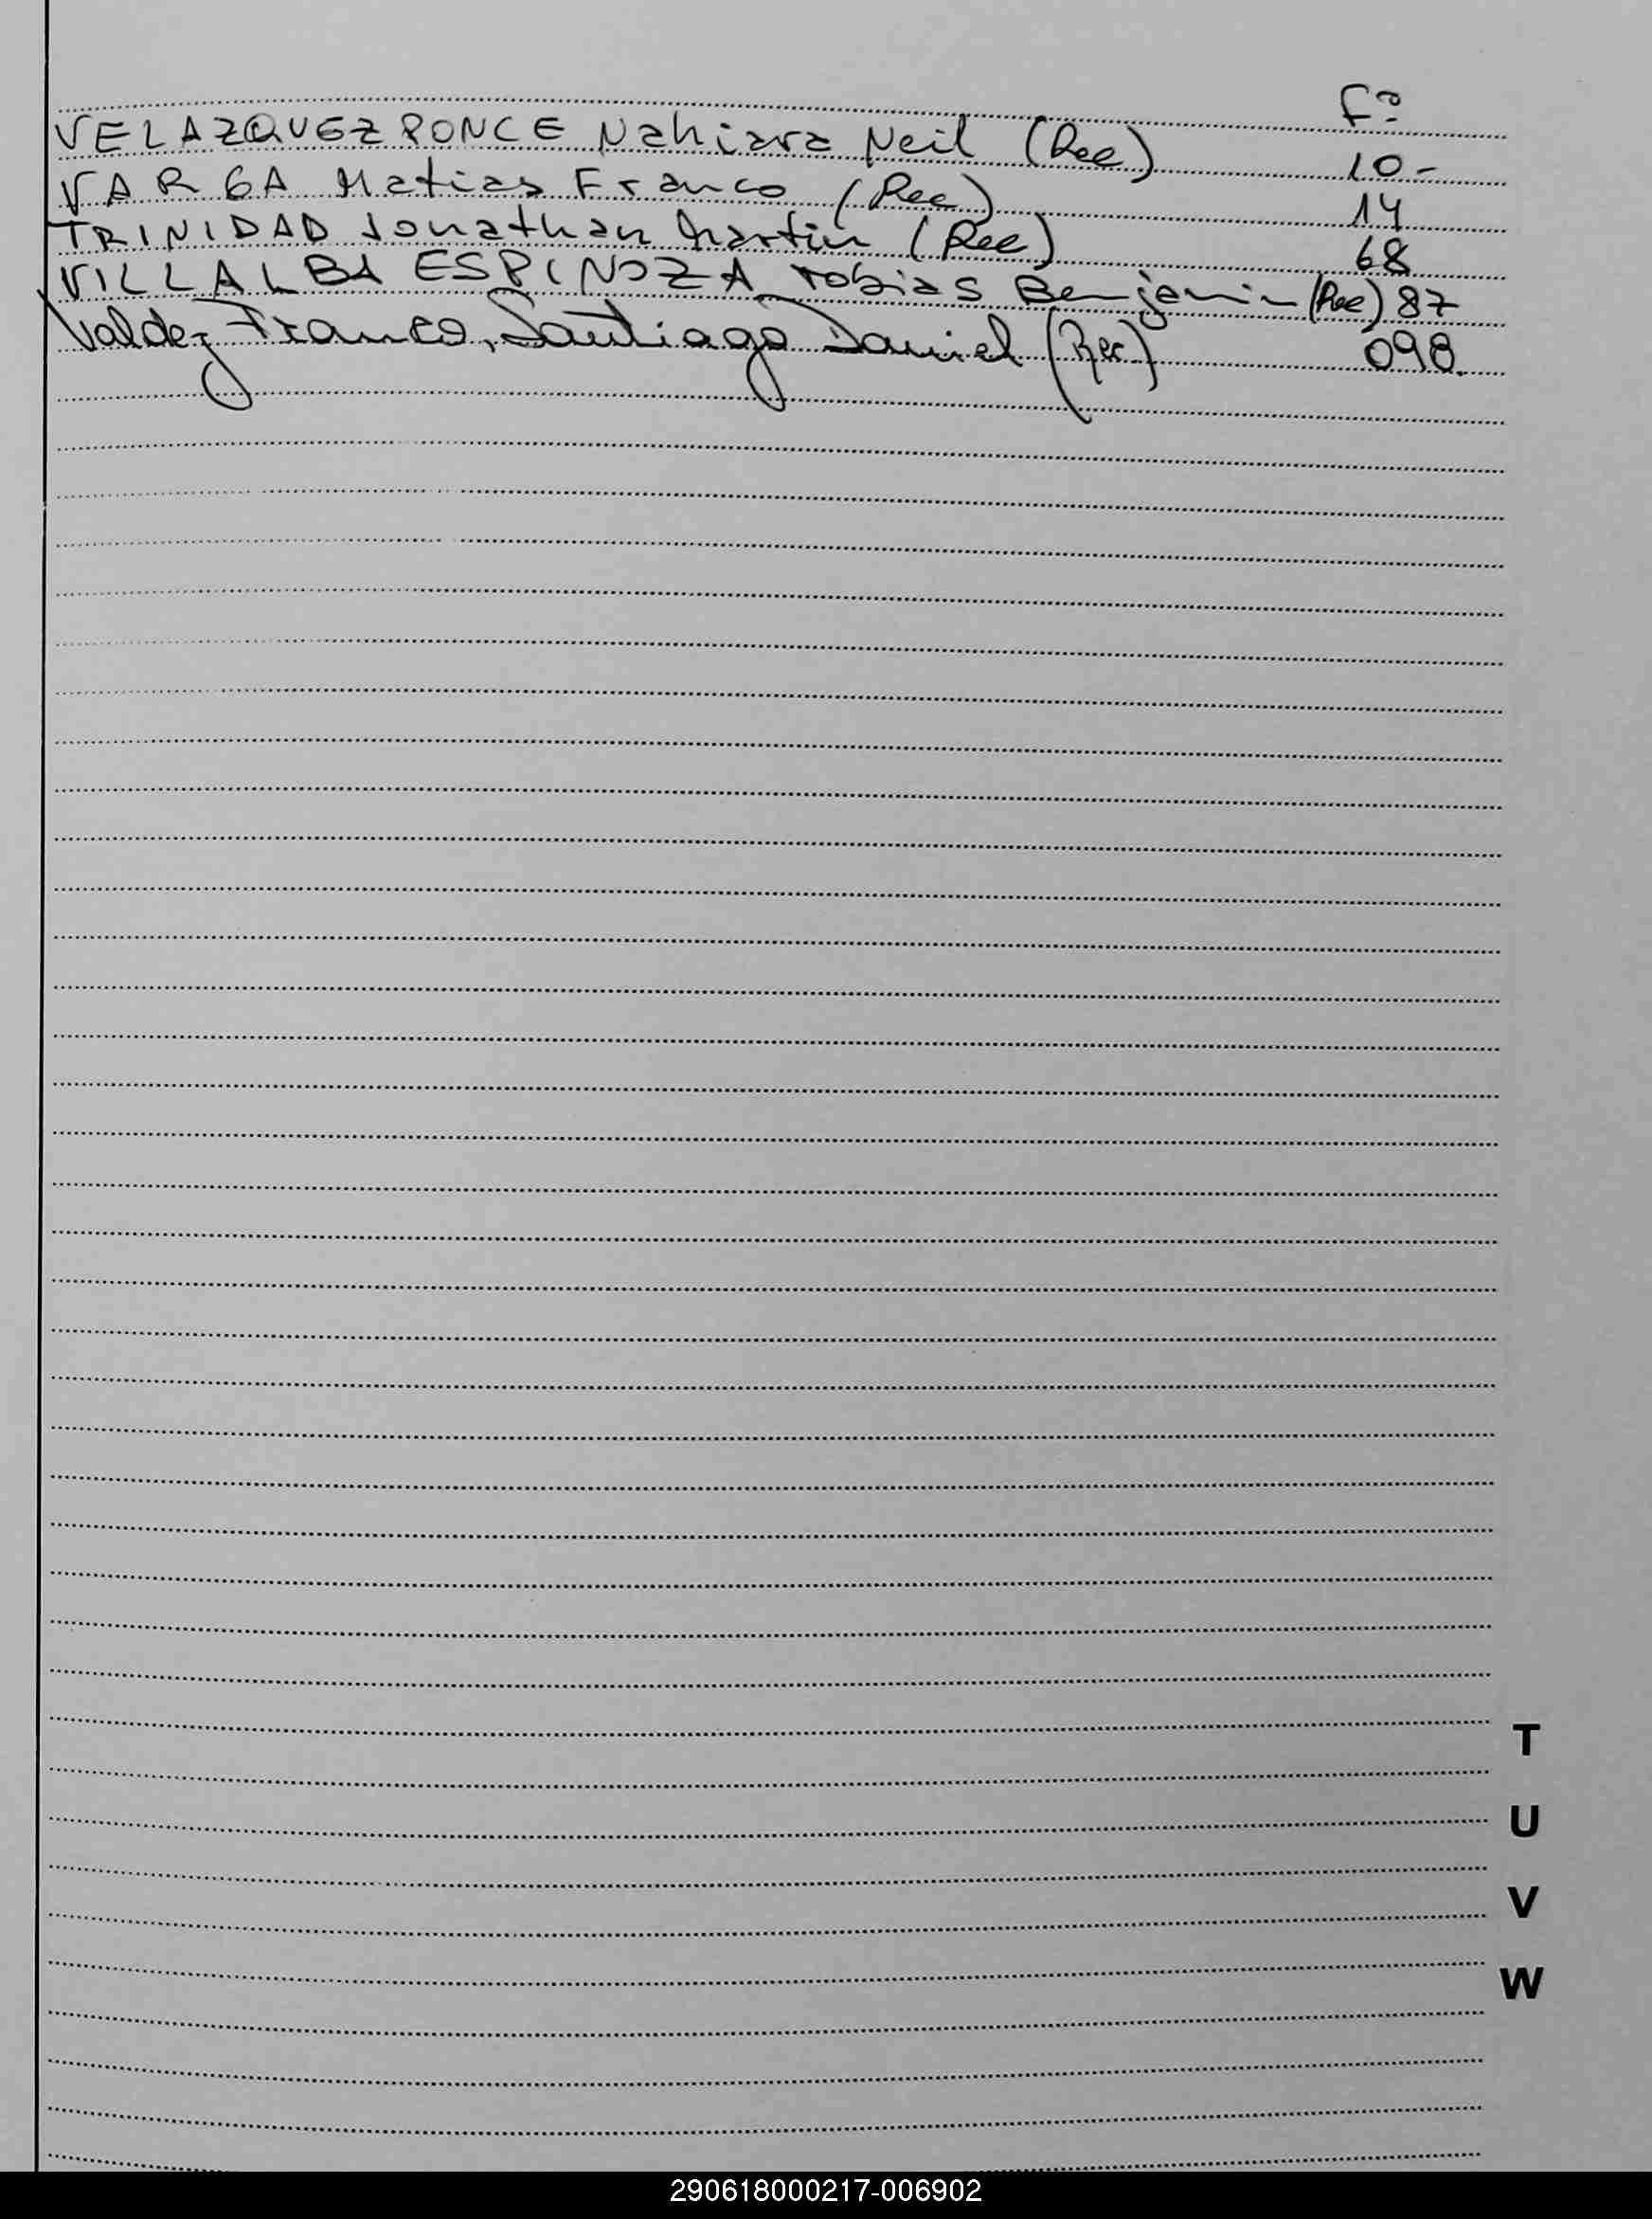 F°
VELAZQUEZ PONCE Nahiara Neil (Rec) 10-
VARGA Matias Franco (Rec) 14
TRINIDAD Jonathan Martin (Rec) 68
VILLALBA ESPINOZA Tobias Benjamin (Rec) 87
Valdez Franco, Santiago Daniel (Rec) 098.
T
U
V
W
290618000217-006902